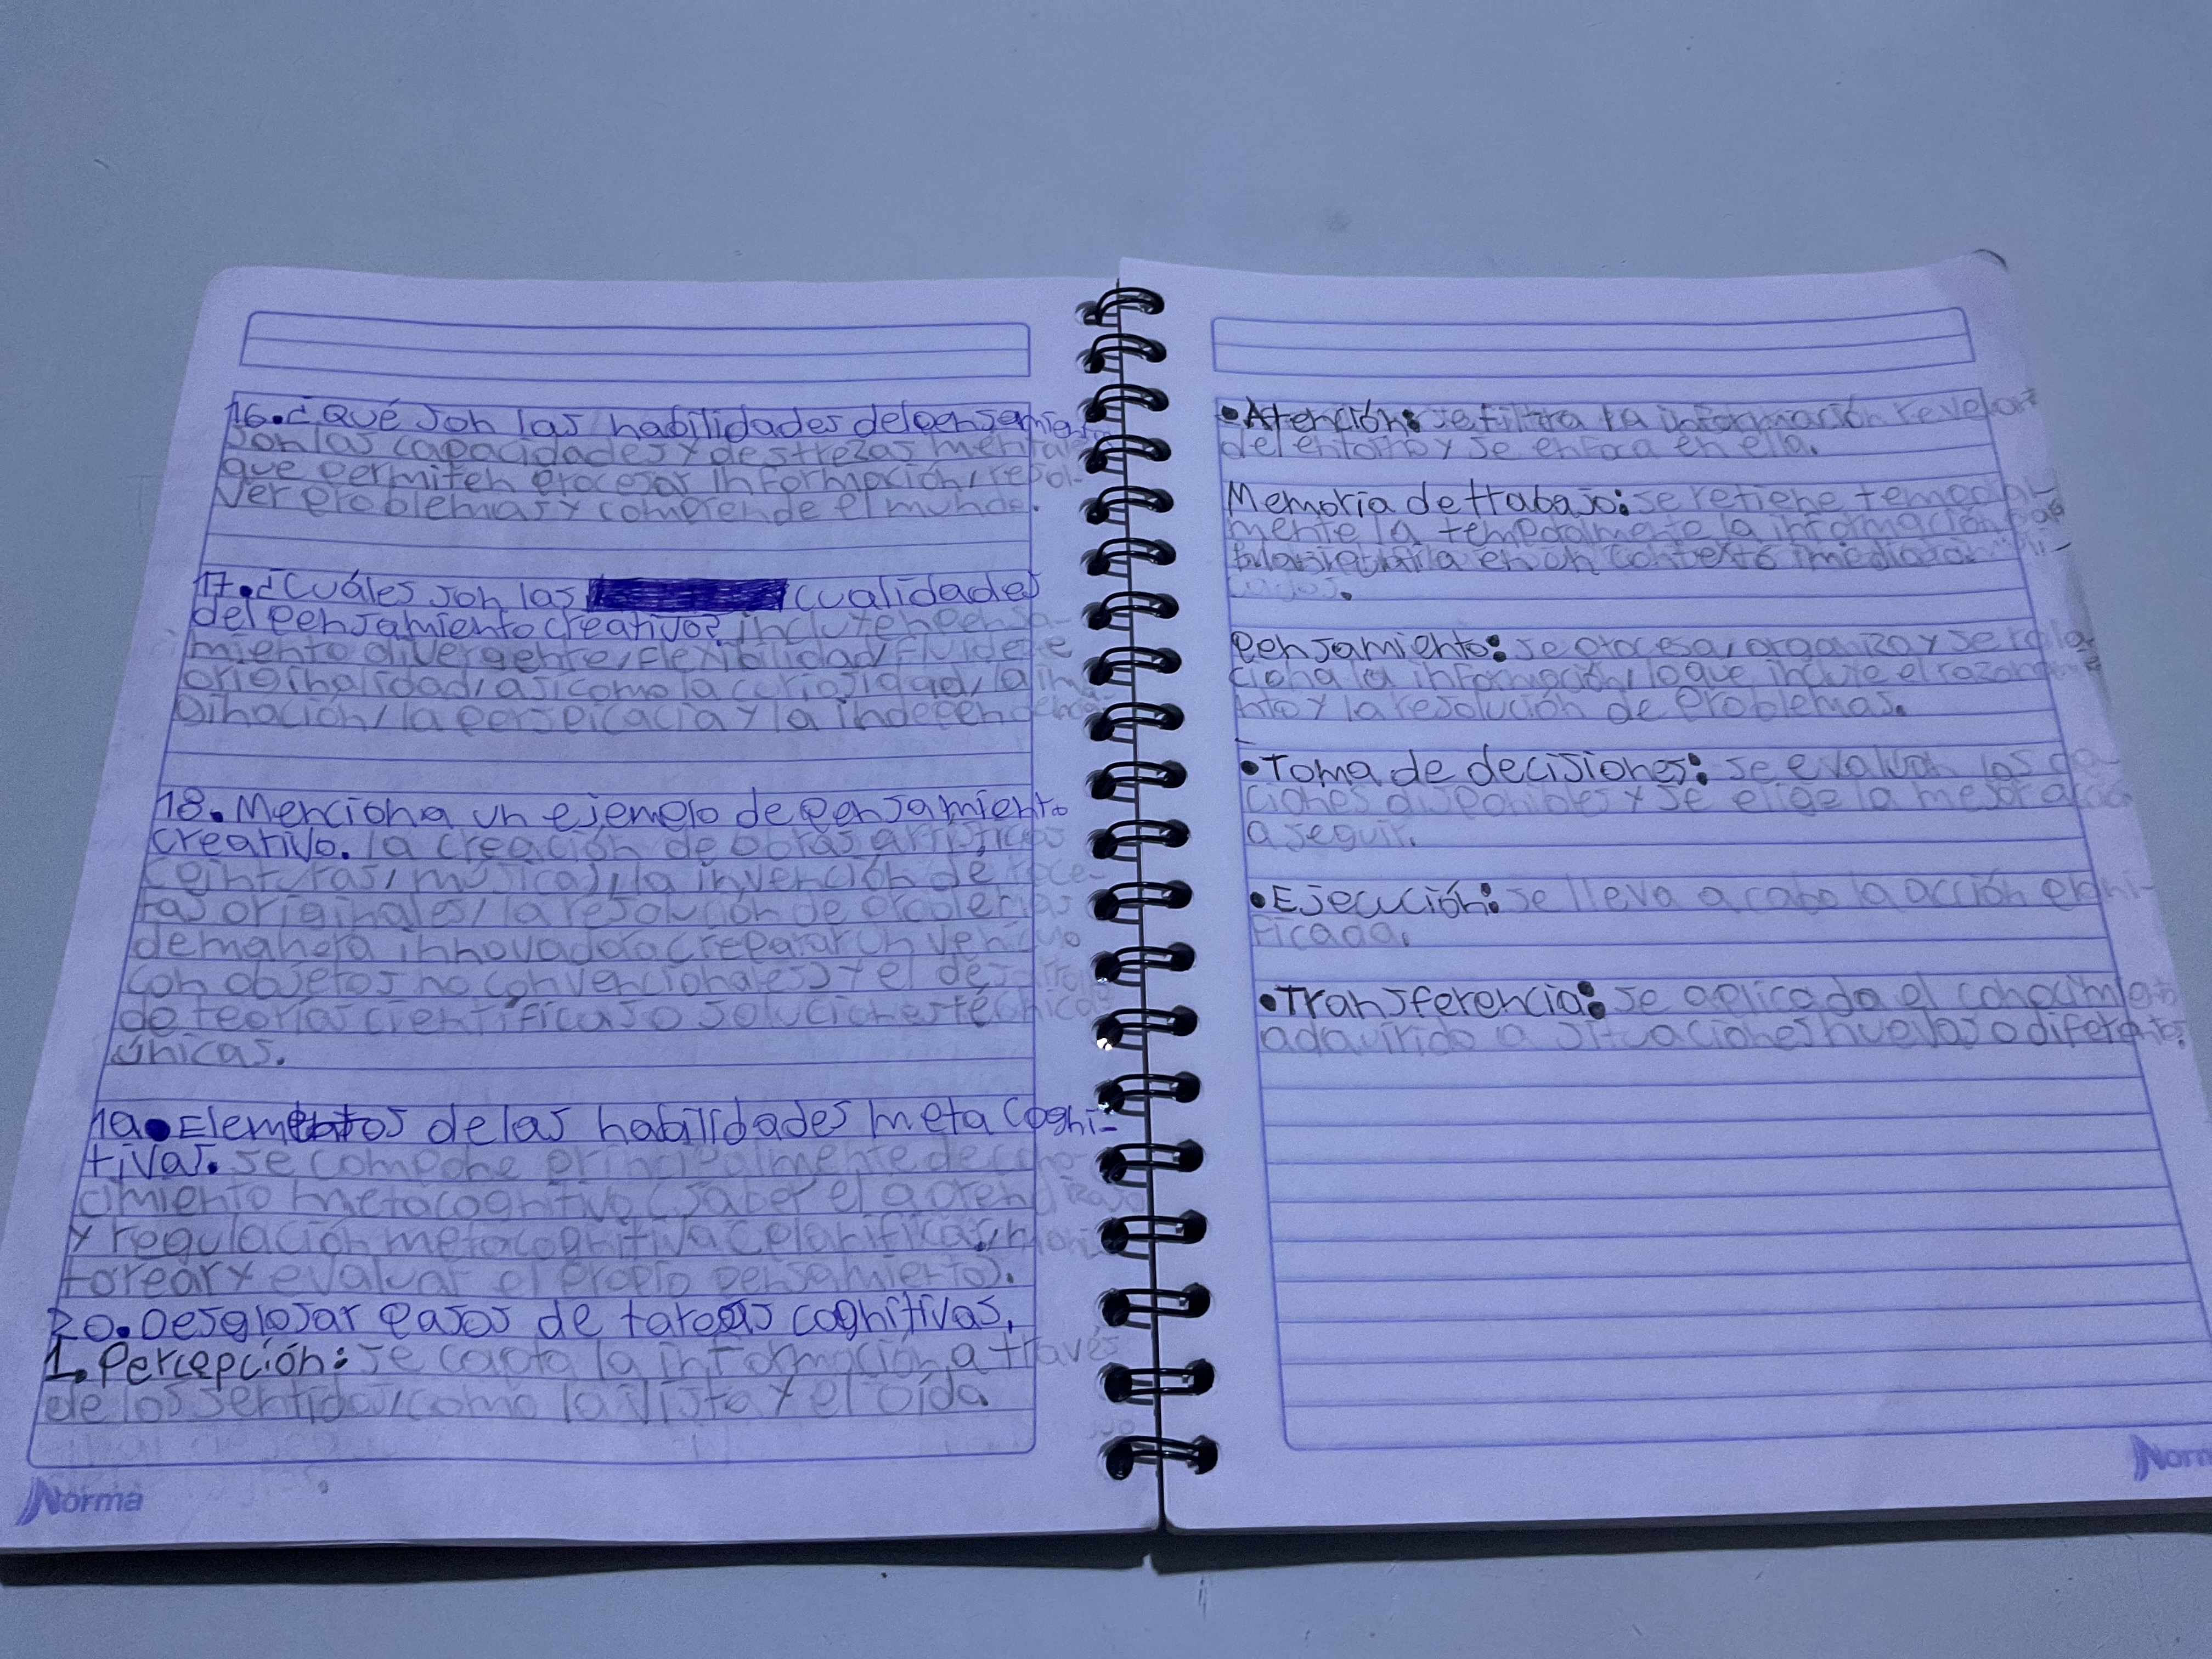 16. ¿Qué son las habilidades del pensamien
son las capacidades y destrezas mental
que permiten procesar información, resol-
ver problemas y comprende el mundo.
17. ¿Cuáles son las cualidades
del pensamiento creativo? incluyen pensa-
miento divergente, flexibilidad, fluidez e
originalidad, así como la curiosidad, la ima
ginación, la perspicacia y la independencia
18. Menciona un ejemplo de pensamiento
creativo. la creación de obras artísticas
(pinturas, músicas), la invención de rece-
tas originales, la resolución de problemas
de manera innovadora (reparar un vehículo
con objetos no convencionales) y el desarrollo
de teorías científicas o soluciones técnicas
únicas.
19. Elementos de las habilidades meta cogni-
tivas. se compone principalmente de cono-
cimiento metacognitivo (saber el aprendizaje
y regulación metacognitiva (planificar, moni-
torear y evaluar el propio pensamiento).
20. Desglosar pasos de tareas cognitivas,
1. Percepción: se capta la información a través
de los sentidos, como la vista y el oída
Norma
• Atención: se filtra la información relevant
del entorno y se enfoca en ella.
Memoria de trabajo: se retiene temporal-
mente la temporalmente la información para
en un contexto imediato.
pensamiento: se procesa, organiza y se rela
ciona la información, lo que incluye el razonamie
nto y la resolución de problemas.
• Toma de decisiones: se evaluan las op-
ciones disponibles y se elige la mejor acción
a seguir.
• Ejecución: se lleva a cabo la acción plani-
ficada.
• Transferencia: se aplicada el conocimiento
adquirido a situaciones nuevas o diferentes
Norm